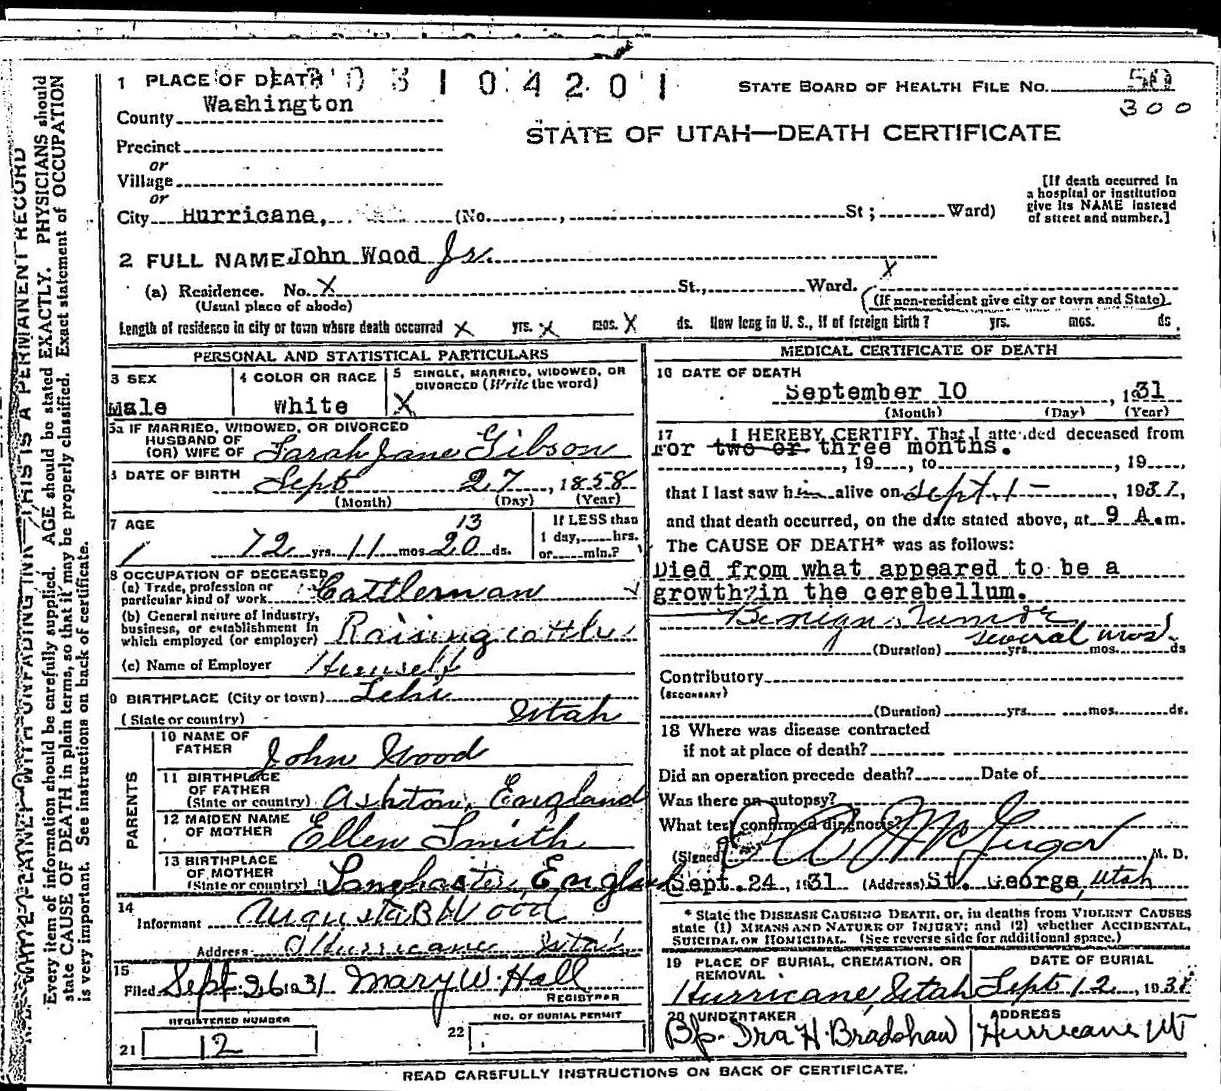 1 PLACE OF DEATH 031 04201
STATE BOARD OF HEALTH FILE No. 50
300
County Washington
STATE OF UTAH—DEATH CERTIFICATE
Precinct
or
Village
or
City Hurricane, (No. , St; Ward)
[If death occurred in
a hospital or institution
give its NAME instead
of street and number.]
2 FULL NAME John Wood Jr.
(a) Residence. No. X St., Ward. X
(Usual place of abode) (If non-resident give city or town and State)
Length of residence in city or town where death occurred X yrs. X mos. X ds. How long in U. S., if of foreign birth? yrs. mos. ds.
PERSONAL AND STATISTICAL PARTICULARS
3 SEX Male
4 COLOR OR RACE White
5 SINGLE, MARRIED, WIDOWED, OR
DIVORCED (Write the word)
X
5a IF MARRIED, WIDOWED, OR DIVORCED
HUSBAND OF
(OR) WIFE OF Sarah Jane Gibson
6 DATE OF BIRTH Sept 27, 1858
(Month) (Day) (Year)
7 AGE 13
72 yrs. 11 mos. 20 ds.
If LESS than
1 day, hrs.
or min.?
8 OCCUPATION OF DECEASED
(a) Trade, profession or
particular kind of work Cattleman
(b) General nature of Industry,
business, or establishment in
which employed (or employer) Raising cattle
(c) Name of Employer Himself
9 BIRTHPLACE (City or town) Lehi
(State or country) Utah
PARENTS
10 NAME OF
FATHER John Wood
11 BIRTHPLACE
OF FATHER
(State or country) Ashton, England
12 MAIDEN NAME
OF MOTHER Ellen Smith
13 BIRTHPLACE
OF MOTHER
(State or country) England
14
Informant Augusta B Wood
Address Hurricane Utah
15
Filed Sept 26 1931 Mary W. Hall
REGISTRAR
REGISTERED NUMBER
21 12
NO. OF BURIAL PERMIT
22
MEDICAL CERTIFICATE OF DEATH
16 DATE OF DEATH
September 10, 1931
(Month) (Day) (Year)
17 I HEREBY CERTIFY, That I attended deceased from
For two or three months.
, 19 , to , 19
that I last saw him alive on Sept. 1 , 1931,
and that death occurred, on the date stated above, at 9 A.m.
The CAUSE OF DEATH* was as follows:
Died from what appeared to be a
growth in the cerebellum.
Benign Tumor
several mos
(Duration) yrs. mos. ds
Contributory
(SECONDARY)
(Duration) yrs. mos. ds.
18 Where was disease contracted
if not at place of death?
Did an operation precede death? Date of
Was there an autopsy?
What test confirmed diagnosis?
(Signed) McGregor M. D.
Sept. 24, 1931 (Address) St. George, Utah
* State the DISEASE CAUSING DEATH, or, in deaths from VIOLENT CAUSES
state (1) MEANS AND NATURE OF INJURY; and (2) whether ACCIDENTAL,
SUICIDAL OR HOMICIDAL. (See reverse side for additional space.)
19 PLACE OF BURIAL, CREMATION, OR
REMOVAL
Hurricane, Utah
DATE OF BURIAL
Sept 12, 1931
20 UNDERTAKER
Bp. Ira H. Bradshaw
ADDRESS
Hurricane Ut
READ CAREFULLY INSTRUCTIONS ON BACK OF CERTIFICATE.
WRITE PLAINLY WITH UNFADING INK—THIS IS A PERMANENT RECORD
Every item of information should be carefully supplied. AGE should be stated EXACTLY. PHYSICIANS should
state CAUSE OF DEATH in plain terms, so that it may be properly classified. Exact statement of OCCUPATION
is very important. See instructions on back of certificate.